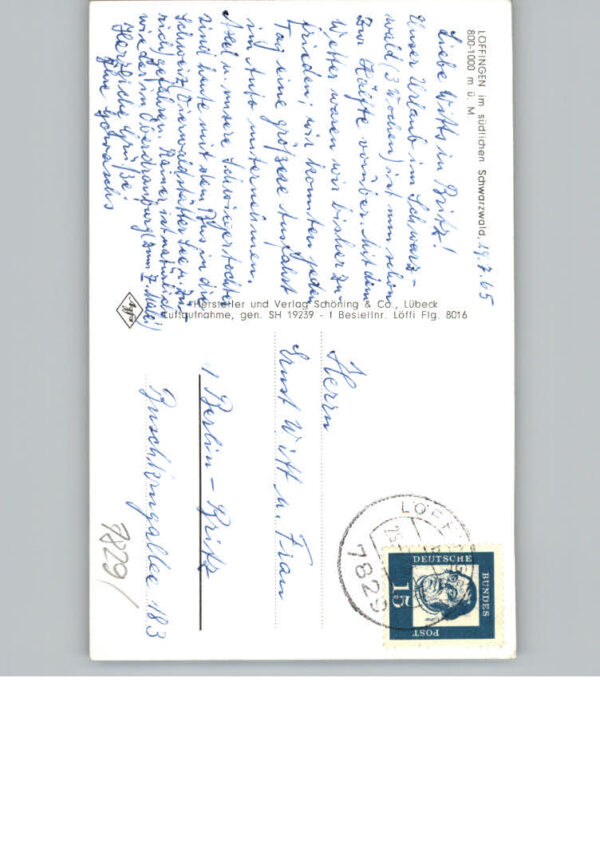 LÖFFINGEN im südlichen Schwarzwald,
800-1000 m ü. M.
29.7.65
Liebe Witts in Britz!
Unser Urlaub im Schwarz-
wald (3 Wochen) ist nun schon
zur Hälfte vorüber. Mit dem
Wetter waren wir bisher zu-
frieden, wir konnten jeden
Tag eine größere Ausfahrt
im Auto unternehmen.
Axel u. unsere Schwiegertochter
sind heute mit dem Bus in die
Schweiz (Vierwaldstätter See u. Zü-
rich) gefahren. Rainer ist natürlich
wieder in
Herzliche Grüße
Ihre
Hersteller und Verlag Schöning & Co., Lübeck
Luftaufnahme, gen. SH 19239 - 1 Bestellnr. Löffi Flg. 8016
Agfa
Herrn
Ernst Witt u. Frau
1 Berlin-Britz
Buschkrugallee 183
7829/
LÖFF
7829
DEUTSCHE
BUNDES
POST
15